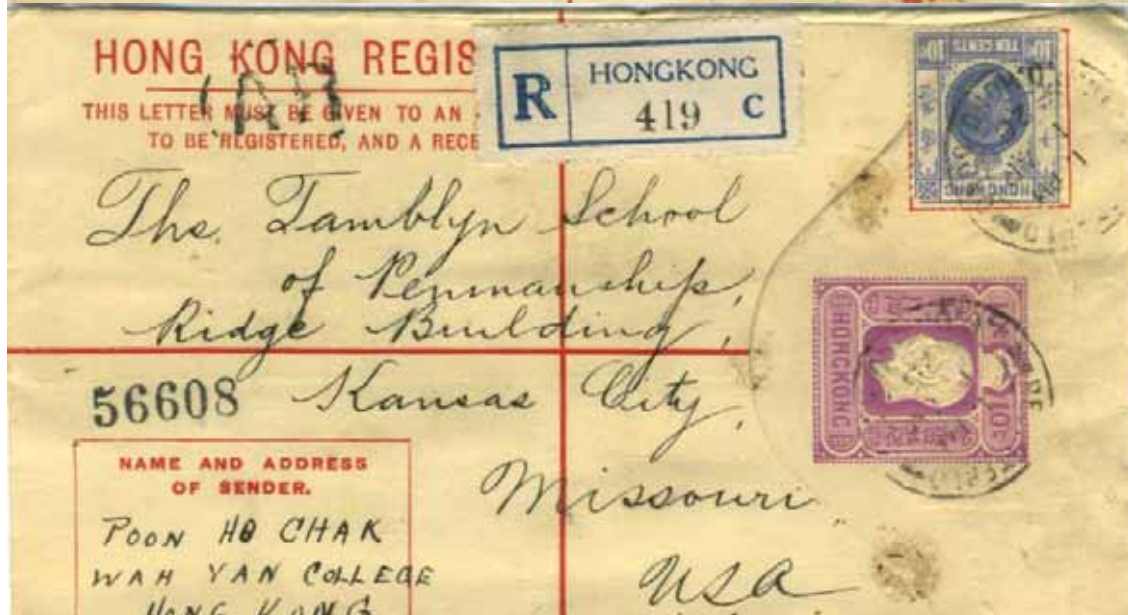 HONG KONG REGIS
THIS LETTER MUST BE GIVEN TO AN
TO BE REGISTERED, AND A RECE
R HONGKONG
419 C
10c TEN CENTS 10c
HONG KONG
The Tamblyn School
of Penmanship,
Ridge Building,
Kansas City,
Missouri
USA
HONGKONG
10c
56608
NAME AND ADDRESS
OF SENDER.
POON HO CHAK
WAH YAN COLLEGE
HONG KONG